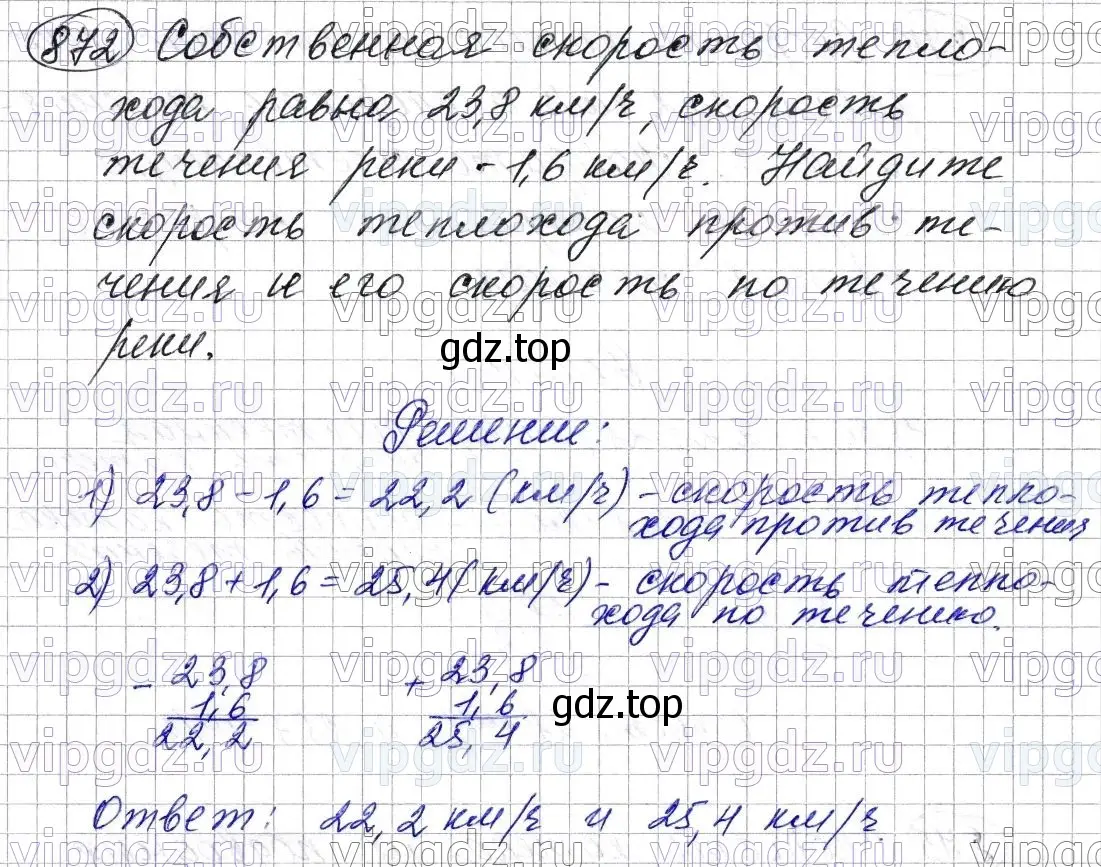 872 Собственная скорость тепло-
хода равна 23,8 км/ч, скорость
течения реки - 1,6 км/ч. Найдите
скорость теплохода против те-
чения и его скорость по течению
реки.
gdz.top
Решение:
1) 23,8 - 1,6 = 22,2 (км/ч) - скорость тепло-
хода против течения
2) 23,8 + 1,6 = 25,4 (км/ч) - скорость тепло-
хода по течению.
- 23,8 + 23,8
1,6 1,6
gdz.top
22,2 25,4
Ответ: 22,2 км/ч и 25,4 км/ч.
vipgdz.ru